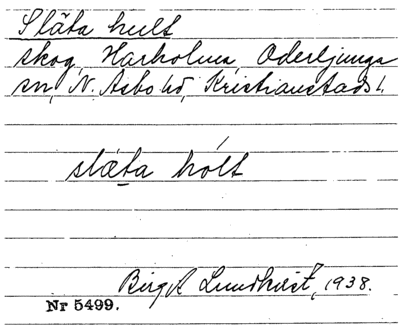 Släta hult
skog, Harholma, Oderljunga
sn, N. Åsbo hd, Kristianstads l.
slæta hólt
Birgit Lundkvist, 1938.
Nr 5499.